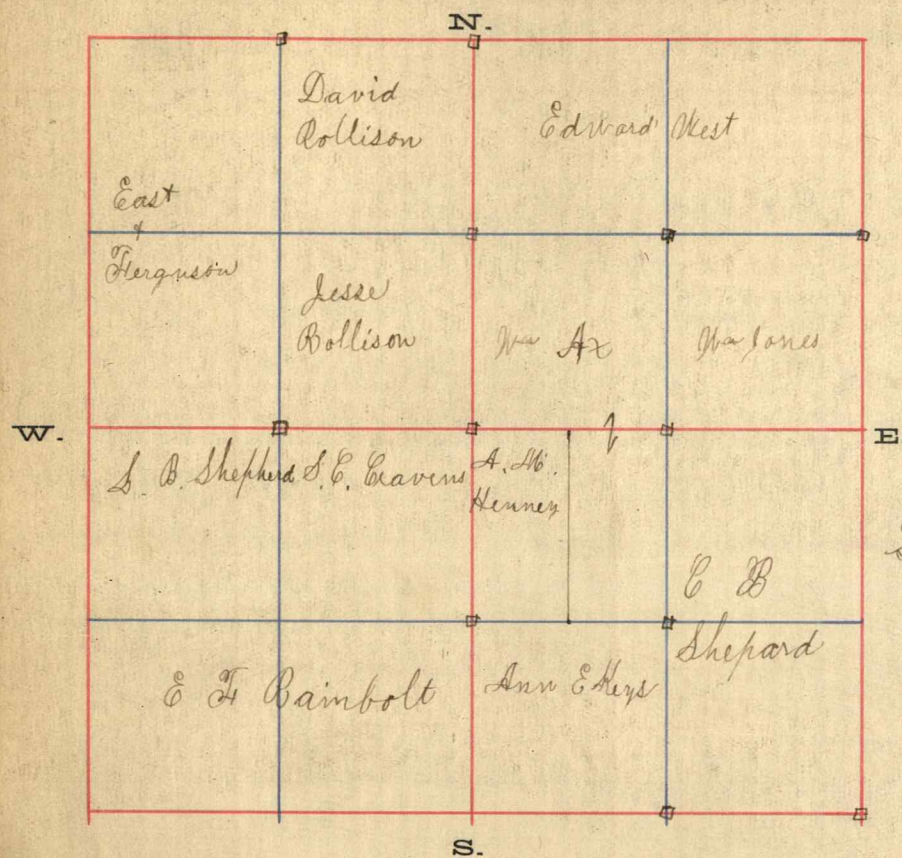 N.
David
Rollison
Edward West
East
&
Ferguson
Jesse
Rollison
Wm Ax
Wm Jones
W.
E
S. B. Shepherd
S. C. Cravens
A. M.
Henney
C B
Shepard
E F Rainbolt
Ann E Keys
S.